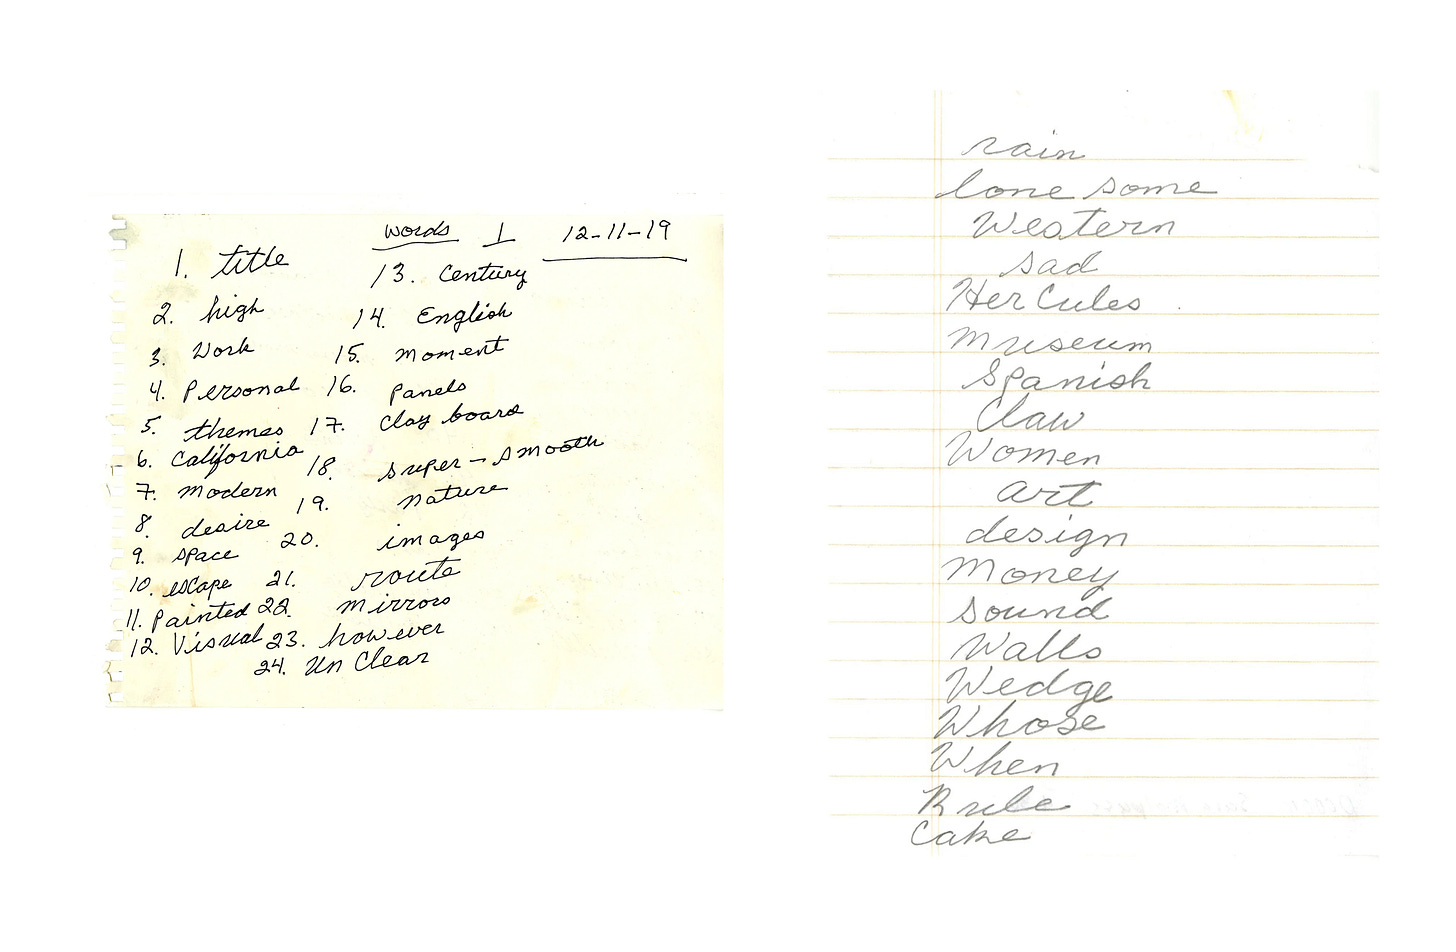 words 1 12-11-19
1. title
2. high
3. Work
4. Personal
5. themes
6. California
7. Modern
8. desire
9. space
10. escape
11. Painted
12. Visual
13. Century
14. English
15. moment
16. panels
17. Clay board
18. super-smooth
19. nature
20. images
21. route
22. mirrors
23. however
24. Un Clear
rain
lone some
Western
sad
Her Cules
Museum
Spanish
Claw
Women
art
design
Money
sound
Walls
Wedge
Whose
When
Rule
Cake